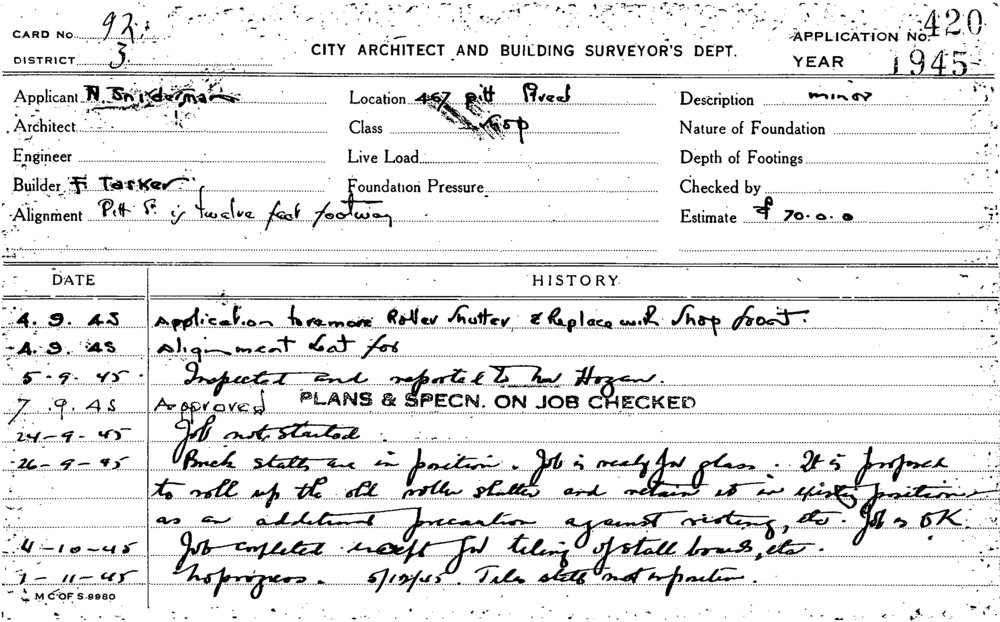 CARD No. 92.
DISTRICT 3
CITY ARCHITECT AND BUILDING SURVEYOR'S DEPT.
APPLICATION No. 420
YEAR 1945
Applicant N. Sniderman Location 457 Pitt Street Description minor
Architect Class Shop Nature of Foundation
Engineer Live Load Depth of Footings
Builder F Tasker Foundation Pressure Checked by
Alignment Pitt St. is twelve feet footway Estimate £ 70.0.0
DATE HISTORY
4. 9. 45 Application to remove Roller Shutter & Replace with Shop front.
4. 9. 45 Alignment for
5-9-45 Inspected and reported to Mr Hogan.
7.9.45 Approved PLANS & SPECN. ON JOB CHECKED
24-9-45 Job not started
26-9-45 Brick stalls are in position. Job is ready for glass. It is proposed
to roll up the old roller shutter and retain it in existing position
as an additional precaution against rioting, etc. Job is OK.
4-10-45 Job completed except for tiling of stall boards, etc.
1-11-45 No progress. 5/12/45. Tiles still not in position.
M C OF S 9980